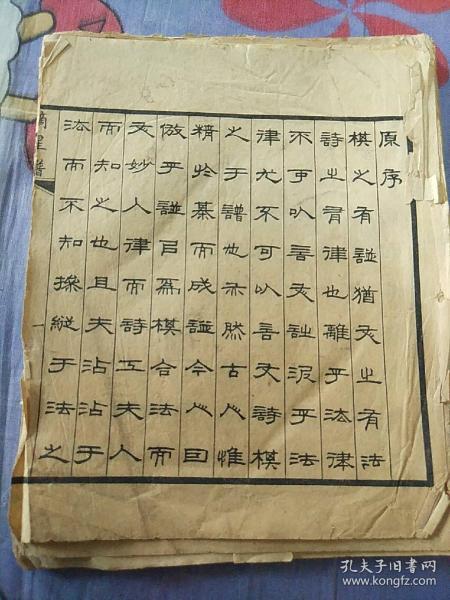 原序
棋之有譜猶文之有法
詩之有律也離乎法律
不可以言文詩泥乎法
律尤不可以言文詩棋
之于譜也亦然古人惟
精於棊而成譜今人日
倣乎譜㠯爲棋合法而
文妙入律而詩工夫人
而知之也且夫沾沾于
法而不知操縱于法之
摘星譜
一
孔夫子旧书网
www.kongfz.com